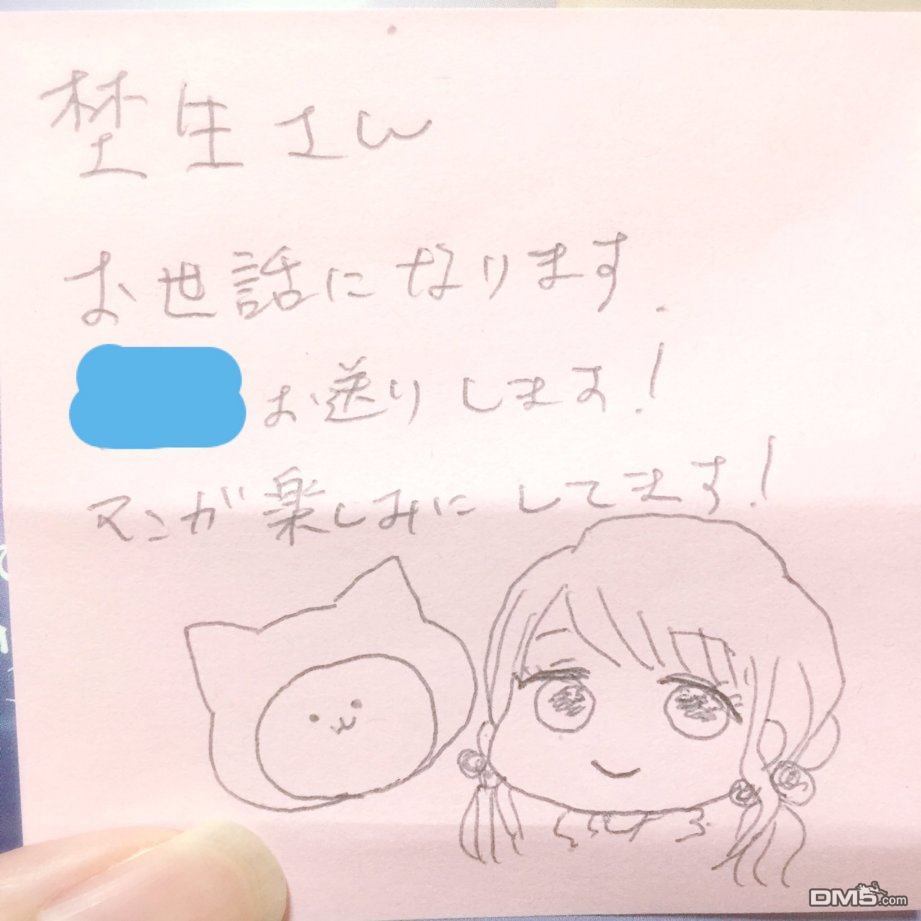 埜生さん
お世話になります.
お送りします!
マンガ楽しみにしてます!
DM5.com